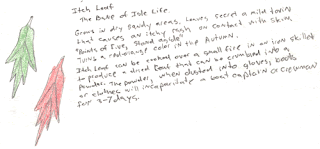 Itch Leaf
The Bane of Isle Life.
Grows in dry sandy areas. Leaves secrete a mild toxin
that causes an itchy rash on contact with skin.
"Points of five, stand aside"
Turns a red/orange color in the Autumn.
Itch Leaf can be cooked over a small fire in an iron skillet
to produce a dried leaf that can be crumbled into a
powder. The powder, when dusted into gloves, boots
or clothes will incapacitate a boat captain or crewman
for 3-7 days.